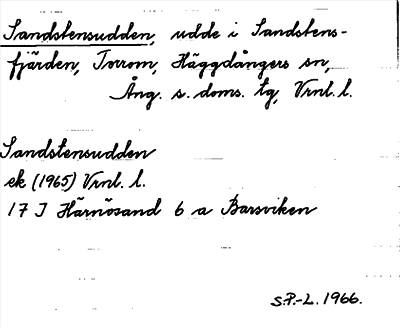 Sandstensudden, udde i Sandstens-
fjärden, Torrom, Häggdångers sn,
Ång. s. doms. tg, Vrnl. l.
Sandstensudden
ek (1965) Vrnl. l.
17 J Härnösand 6 a Barsviken
S.P.-L. 1966.